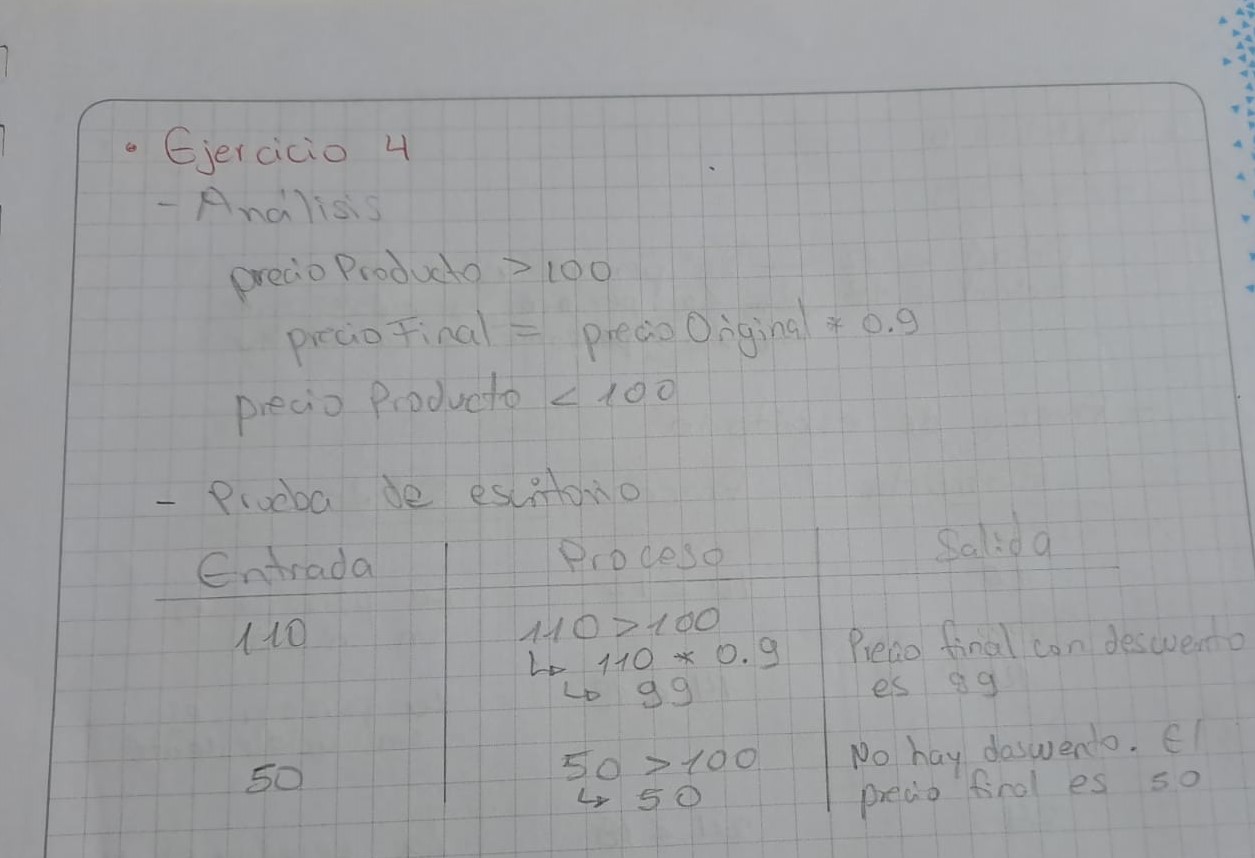 • Ejercicio 4
- Análisis
precioProducto > 100
precioFinal = precioOriginal * 0.9
precioProducto < 100
- Prueba de escritorio
Entrada Proceso Salida
110 110 > 100
↳ 110 * 0.9 Precio final con descuento
↳ 99 es 99
50 50 > 100 No hay descuento. El
↳ 50 precio final es 50